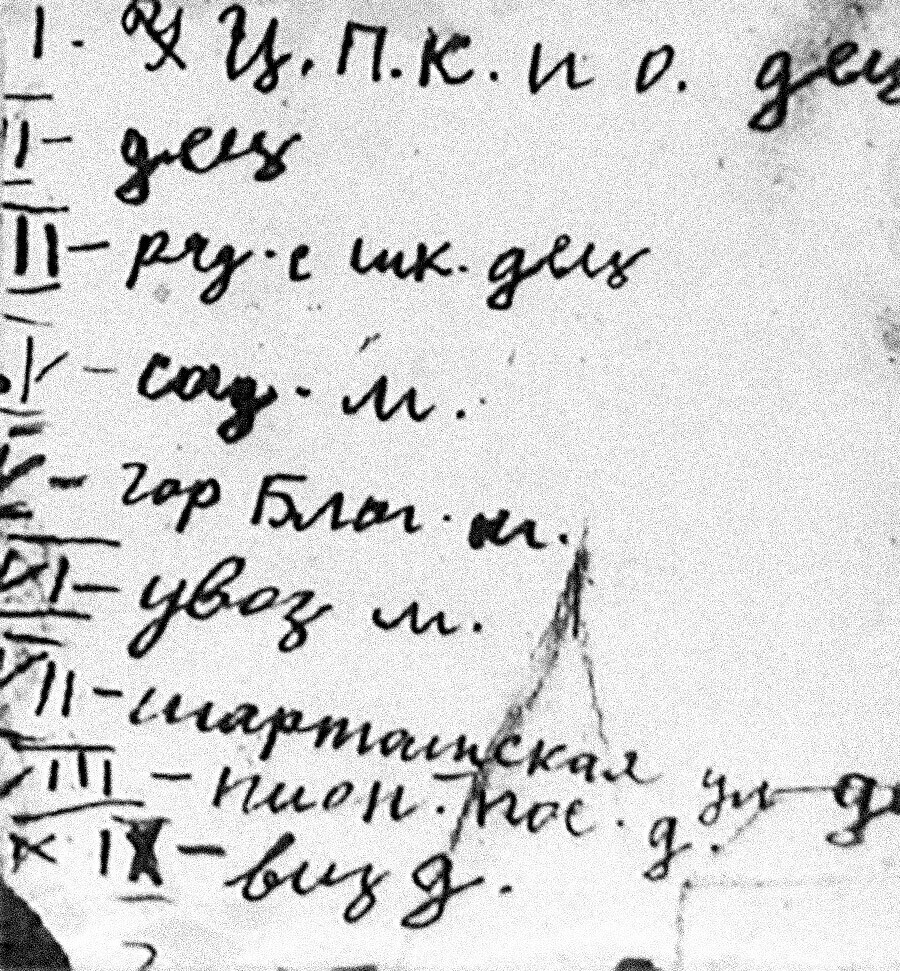 I. Ц.П.К. и О. дец
II - дец
III - ряд. с шк. дец
IV - сад. м.
V - гор Благ. м.
VI - увоз м.
VII - шарташская ул - д
VIII - пион. пос. д.
IX - виз д.